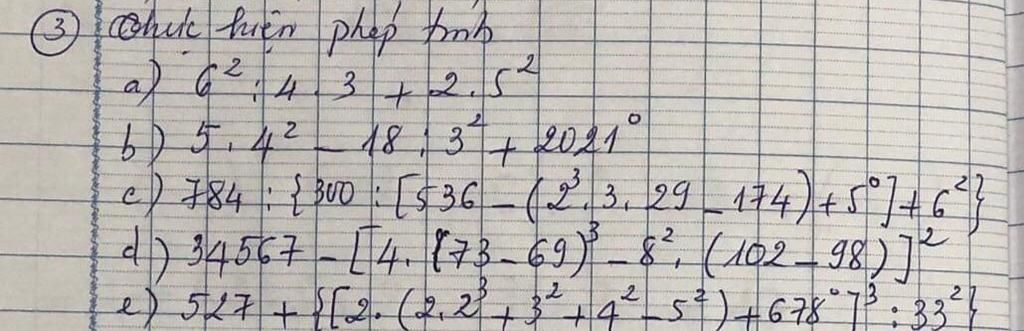 ③ Thực hiện phép tính
a) 6² : 4 . 3 + 2 . 5²
b) 5 . 4² – 18 : 3² + 2021⁰
c) 784 : {300 : [536 – (2³ . 3 . 29 – 174) + 5⁰] + 6²}
d) 34567 – [4 . (73 – 69)³ – 8² . (102 – 98)]²
e) 527 + {[2 . (2 . 2³ + 3² + 4² – 5²) + 678⁰]³ : 33²}